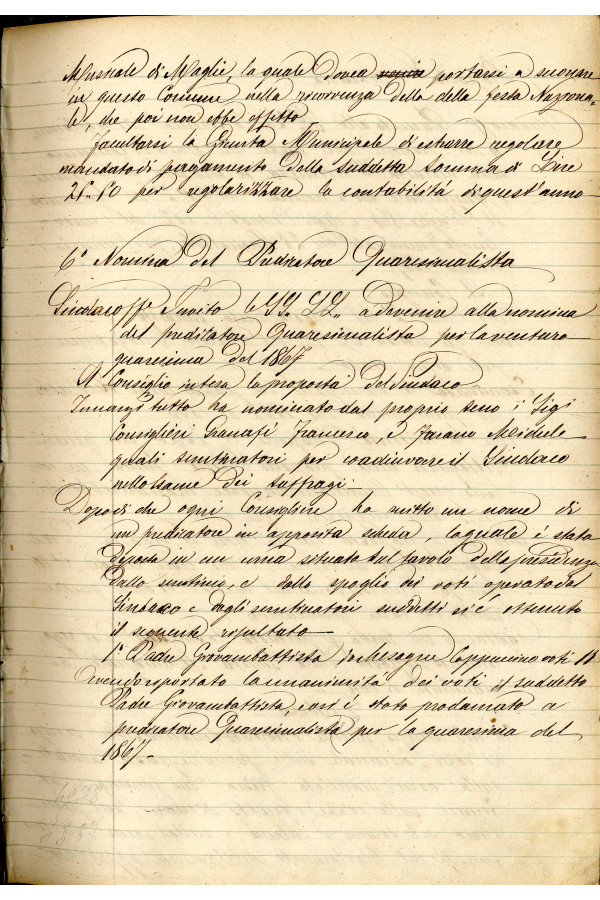 Musicale di Maglie, la quale dovea venire portarsi a suonare
in questo Comune nella ricorrenza della della festa Naziona-
le, che poi non ebbe effetto
Facultarsi la Giunta Municipale di estrarre regolare
mandato di pagamento della suddetta somma di Lire
per regolarizzare la contabilità di quest'anno
6° Nomina del Predicatore Quaresimalista
Sindaco ff. Invito le SS. LL. a devenire alla nomina
del predicatore Quaresimalista per la ventura
quaresima del 1867
Il Consiglio intesa la proposta del Sindaco
Innanzi tutto ha nominato dal proprio seno i Sigi
Consiglieri Granafi Francesco, e Fasano Michele
quali scrutinatori per coadiuvare il Sindaco
nell'esame dei suffragi.
Dopo di che ogni Consigliere ha scritto un nome di
un predicatore in apposita scheda, la quale è stata
deposta in un urna situata sul tavolo della presidenza
dallo scrutinio, e dallo spoglio dei voti operato dal
Sindaco e dagli scrutinatori suddetti si è ottenuto
il seguente risultato
1° Padre Giovambattista da Mesagne Cappuccino voti 11
Avendo riportato la unanimità dei voti il suddetto
Padre Giovambattista, così è stato proclamato a
predicatore Quaresimalista per la quaresima del
1867.